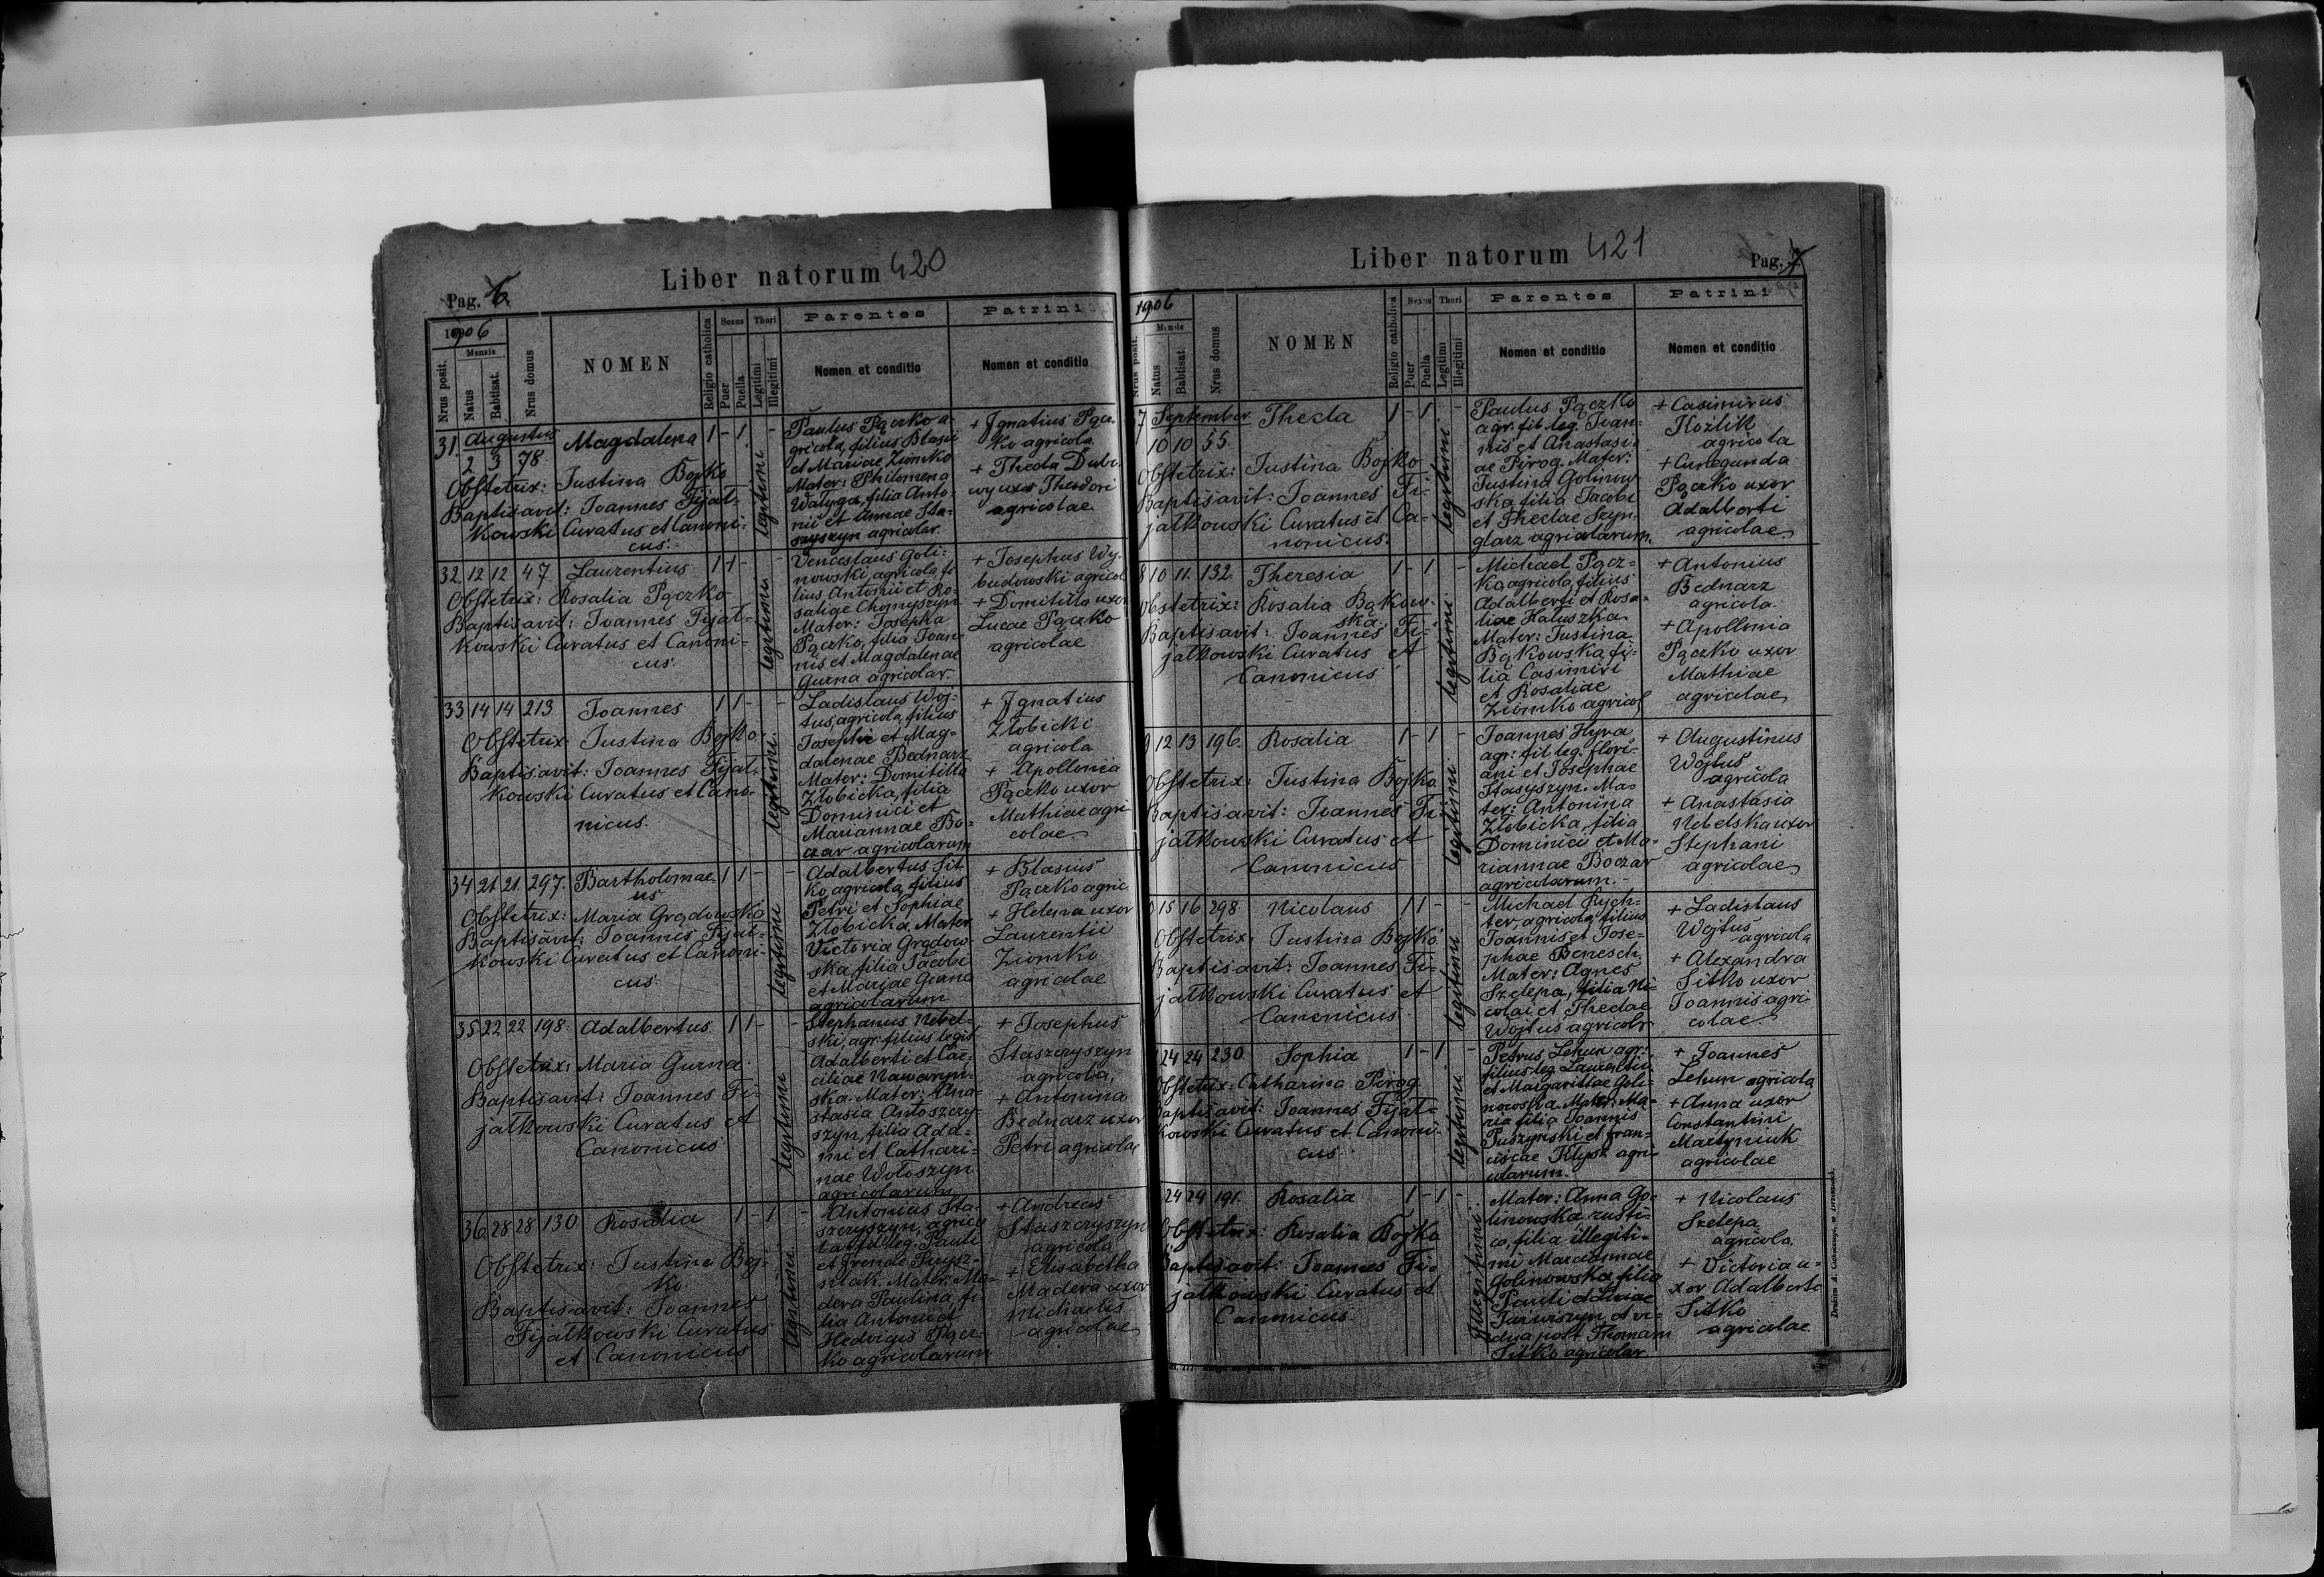 Pag. 6.
Liber natorum 420
1906
Nrus posit.
Mensis
Natus
Babtisat.
Nrus domus
NOMEN
Religio catholica
Sexus
Puer
Puella
Thori
Legitimi
Illegitimi
Parentes
Nomen et conditio
Patrini
Nomen et conditio
31. Augustus
2 3 78 Magdalena 1 - 1 -
Obstetrix: Justina Bojko
Baptisavit: Joannes Fijał-
kowski Curatus et Canoni-
cus.
legitimi
Paulus Pączko a-
gricola, filius Blasii
et Mariae Ziomko
Mater: Philomena
Wałyga, filia Anto-
nii et Annae Sta-
szyszyn agricolar.
+ Ignatius Pącz-
ko agricola
+ Thecla Dubo-
wy uxor Theodori
agricolae
32. 12 12 47 Laurentius 1 1 - -
Obstetrix: Rosalia Pączko
Baptisavit: Joannes Fijał-
kowski Curatus et Canoni-
cus.
legitimi
Venceslaus Goli-
nowski, agricola, fi-
lius Antonii et Ro-
saliae Chomyszyn
Mater: Josepha
Pączko, filia Joan-
nis et Magdalenae
Gurna agricolar.
+ Josephus Wy-
budowski agricol
+ Domitilla uxor
Lucae Pączko
agricolae
33 14 14 213 Joannes 1 1 - -
Obstetrix: Justina Bojko
Baptisavit: Joannes Fijał-
kowski Curatus et Cano-
nicus.
legitimi
Ladislaus Woj-
tuś, agricola, filius
Josephi et Mag-
dalenae Bednarz
Mater: Domitilla
Złobicka, filia
Dominici et
Mariannae Bo-
czar agricolarum
+ Ignatius
Złobicki
agricola
+ Apollonia
Pączko uxor
Mathiae agri
colae
34 21 21 297. Bartholomae- 1 1 - -
us
Obstetrix: Maria Grądowska
Baptisavit: Joannes Fijał-
kowski Curatus et Canoni-
cus.
legitimi
Adalbertus Sit-
ko, agricola, filius
Petri et Sophiae
Złobicka, Mater
Victoria Grądow-
ska, filia Jacobi
et Mariae Gurna
agricolarum
+ Blasius
Pączko agric
+ Helena uxor
Laurentii
Ziomko
agricolae
35 22 22 198. Adalbertus 1 1 - -
Obstetrix: Maria Gurna
Baptisavit: Joannes Fi-
jałkowski Curatus et
Canonicus
legitimi
Stephanus Nebel-
ski, agr. filius legit
Adalberti et Cae-
ciliae Nawaryn-
ska. Mater: Ana-
stasia Antoszczy-
szyn, filia Ada-
mi et Cathari-
nae Wołoszyn
agricolarum
+ Josephus
Staszczyszyn
agricola,
+ Antonina
Bednarz uxor
Petri agricolae
36. 28 28 130 Rosalia 1 - 1 -
Obstetrix: Justina Boj-
ko
Baptisavit: Joannes
Fijałkowski Curatus
et Canonicus
legitimi
Antonius Sta-
szczyszyn, agrico
la, fil. leg. Pauli
et Irenae
Mater: Ma-
dera Paulina, fi-
lia Antonii et
Hedvigis Pącz-
ko agricolarum
+ Andreas
Staszczyszyn
agricola
+ Elisabetha
Madera uxor
Michaelis
agricolae
Liber natorum 421
Pag. 7.
1906
Nrus posit.
Mensis
Natus
Babtisat.
Nrus domus
NOMEN
Religio catholica
Sexus
Puer
Puella
Thori
Legitimi
Illegitimi
Parentes
Nomen et conditio
Patrini
Nomen et conditio
7 September Thecla 1 - 1 -
10 10 55.
Obstetrix: Justina Bojko
Baptisavit: Joannes Fi-
jałkowski Curatus et Ca-
nonicus.
legitimi
Paulus Pączko
agr. fil. leg. Joan-
nis et Anastasi-
ae Pirog. Mater:
Justina Golinow-
ska, filia Jacobi
et Theclae Szyn-
glarz agricolarum.
+ Casimirus
Koźlik
agricola
+ Cunegunda
Pączko uxor
Adalberti
agricolae
8 10 11. 132. Theresia 1 - 1 -
Obstetrix: Rosalia Bąkow-
ska
Baptisavit: Joannes Fi-
jałkowski Curatus et
Canonicus
legitimi
Michael Pącz-
ko, agricola, filius
Adalberti et Rosa-
liae Haluszka
Mater: Justina
Bąkowska, fi-
lia Casimiri
et Rosaliae
Ziomko agricol
+ Antonius
Bednarz
agricola.
+ Apollonia
Pączko uxor
Mathiae
agricolae
9 12 13 196. Rosalia 1 - 1 -
Obstetrix: Justina Bojko
Baptisavit: Joannes Fi-
jałkowski Curatus et
Canonicus
legitimi
Joannes Hyra
agr. fil. leg. Flori-
ani et Josephae
Stasyszyn. Ma-
ter: Antonina
Złobicka, filia
Dominici et Ma-
riannae Boczar
agricolarum.
+ Augustinus
Wojtuś
agricola
+ Anastasia
Nebelska uxor
Stephani
agricolae
0 15 16 298 Nicolaus 1 1 - -
Obstetrix: Justina Bojko
Baptisavit: Joannes Fi-
jałkowski Curatus et
Canonicus
legitimi
Michael Rych-
ter, agricola, filius
Joannis et Jose-
phae Benesch.
Mater: Agnes
Szelepa, filia Ni-
colai et Theclae
Wojtuś agricolr
+ Ladislaus
Wojtuś
agricola
+ Alexandra
Sitko uxor
Joannis agri-
colae
24 24 230 Sophia 1 - 1 -
Obstetrix: Catharina Pirog
Baptisavit: Joannes Fijał-
kowski Curatus et Canoni-
cus
legitimi
Petrus Lehun agr.
filius leg. Laurentii
et Margarithae Goli-
nowska. Mater: Ma-
ria filia Joannis
Puszynski et Fran-
ciscae Klysz agri-
colarum.
+ Joannes
Lehun agricola
+ Anna uxor
Constantini
Martyniuk
agricolae
24 24 191. Rosalia 1 - 1 -
Obstetrix: Rosalia Bojko
Baptisavit: Joannes Fi-
jałkowski Curatus et
Canonicus
Illegitimi
Mater: Anna Go-
linowska rusti-
ca, filia illegiti-
mi Mariannae
Golinowska, filia
Pauli et
et vi-
dua post Thomam
Sitko agricolar.
+ Nicolaus
Szelepa
agricola.
+ Victoria u-
xor Adalberti
Sitko
agricolae